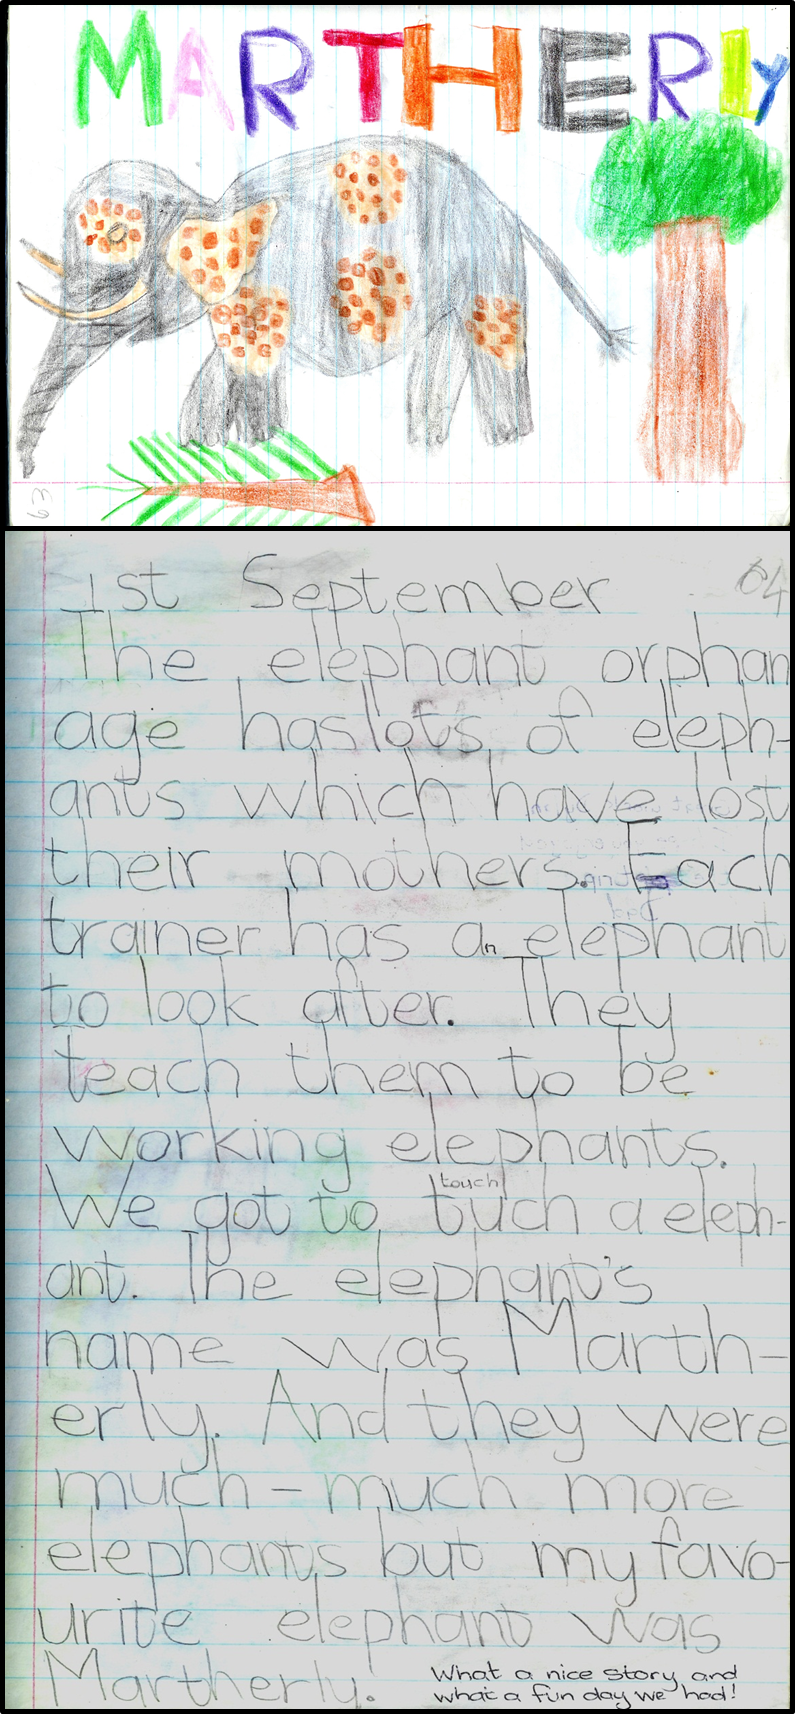 MARTHERLY
63
1st September 64
The elephant orphan
age has lots of eleph-
ants which have lost
their mothers. Each
trainer has an elephant
to look after. They
teach them to be
working elephants.
touch
We got to tuch a eleph-
ant. The elephant's
name was Marth-
erly. And they were
much-much more
elephants but my favo-
urite elephant was
Martherly.
What a nice story and
what a fun day we had!